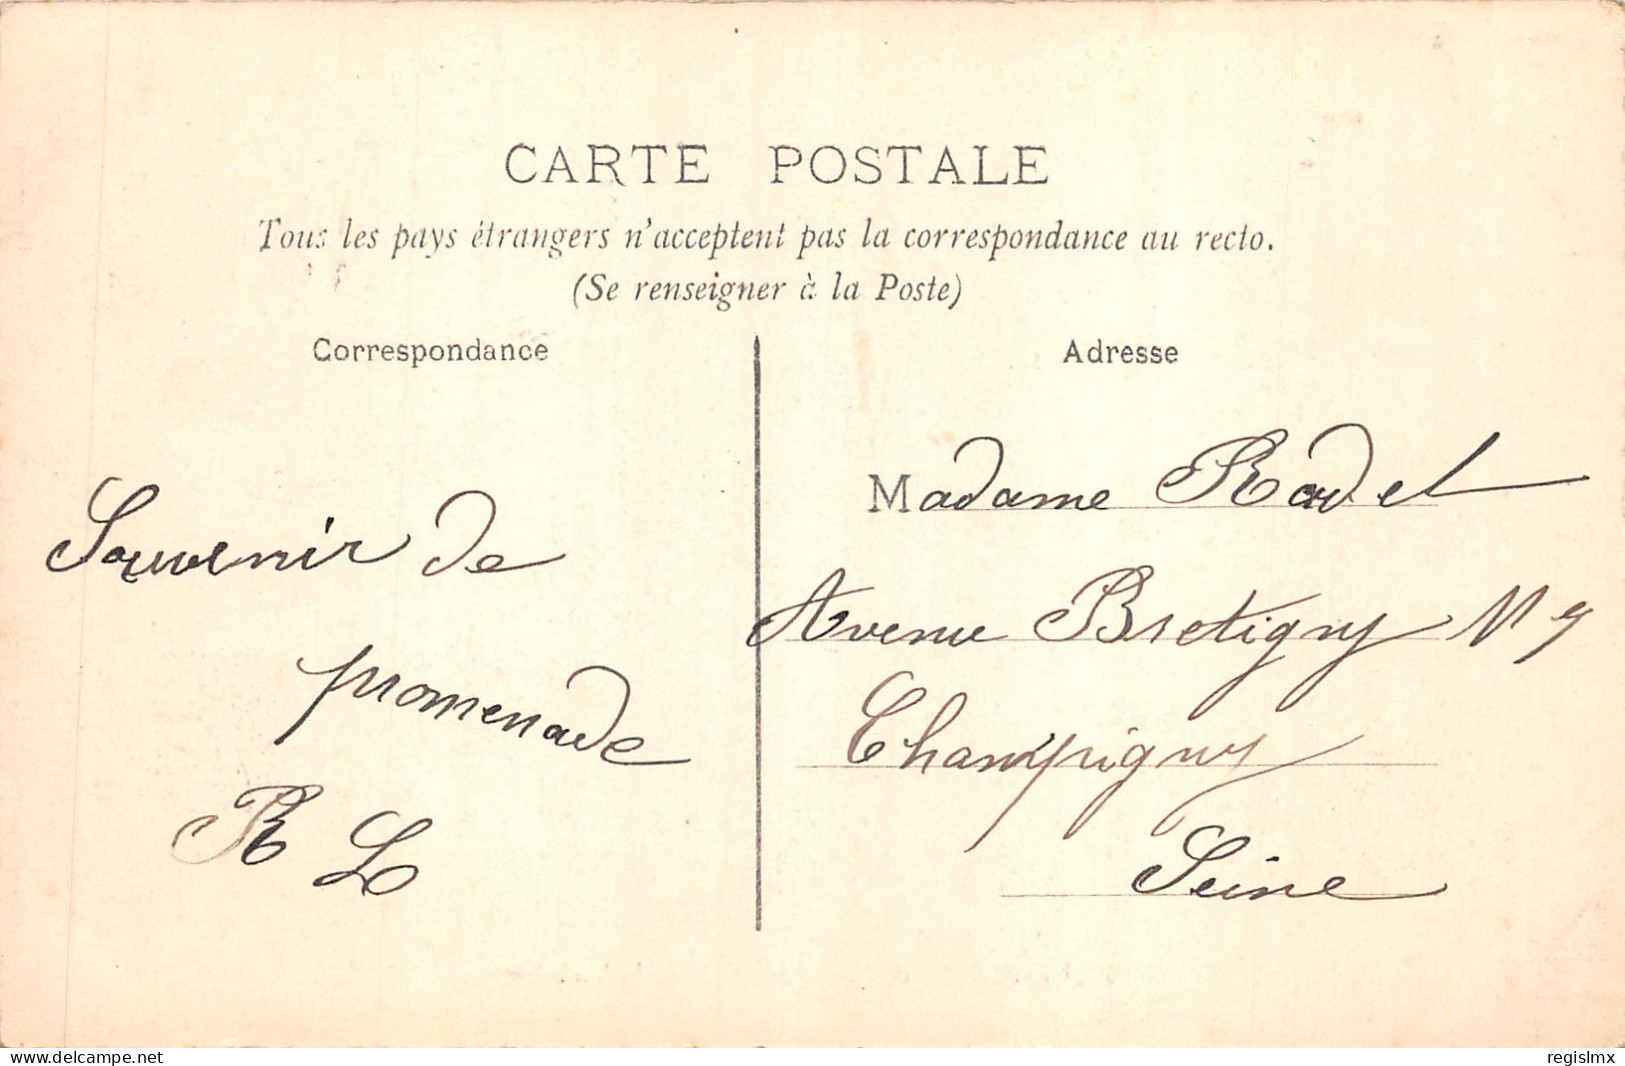 CARTE POSTALE
Tous les pays étrangers n'acceptent pas la correspondance au recto.
(Se renseigner à la Poste)
Correspondance
Souvenir de
promenade
R L
Adresse
Madame Radel
Avenue Bretigny N 9
Champigny
Seine
www.delcampe.net
regislmx